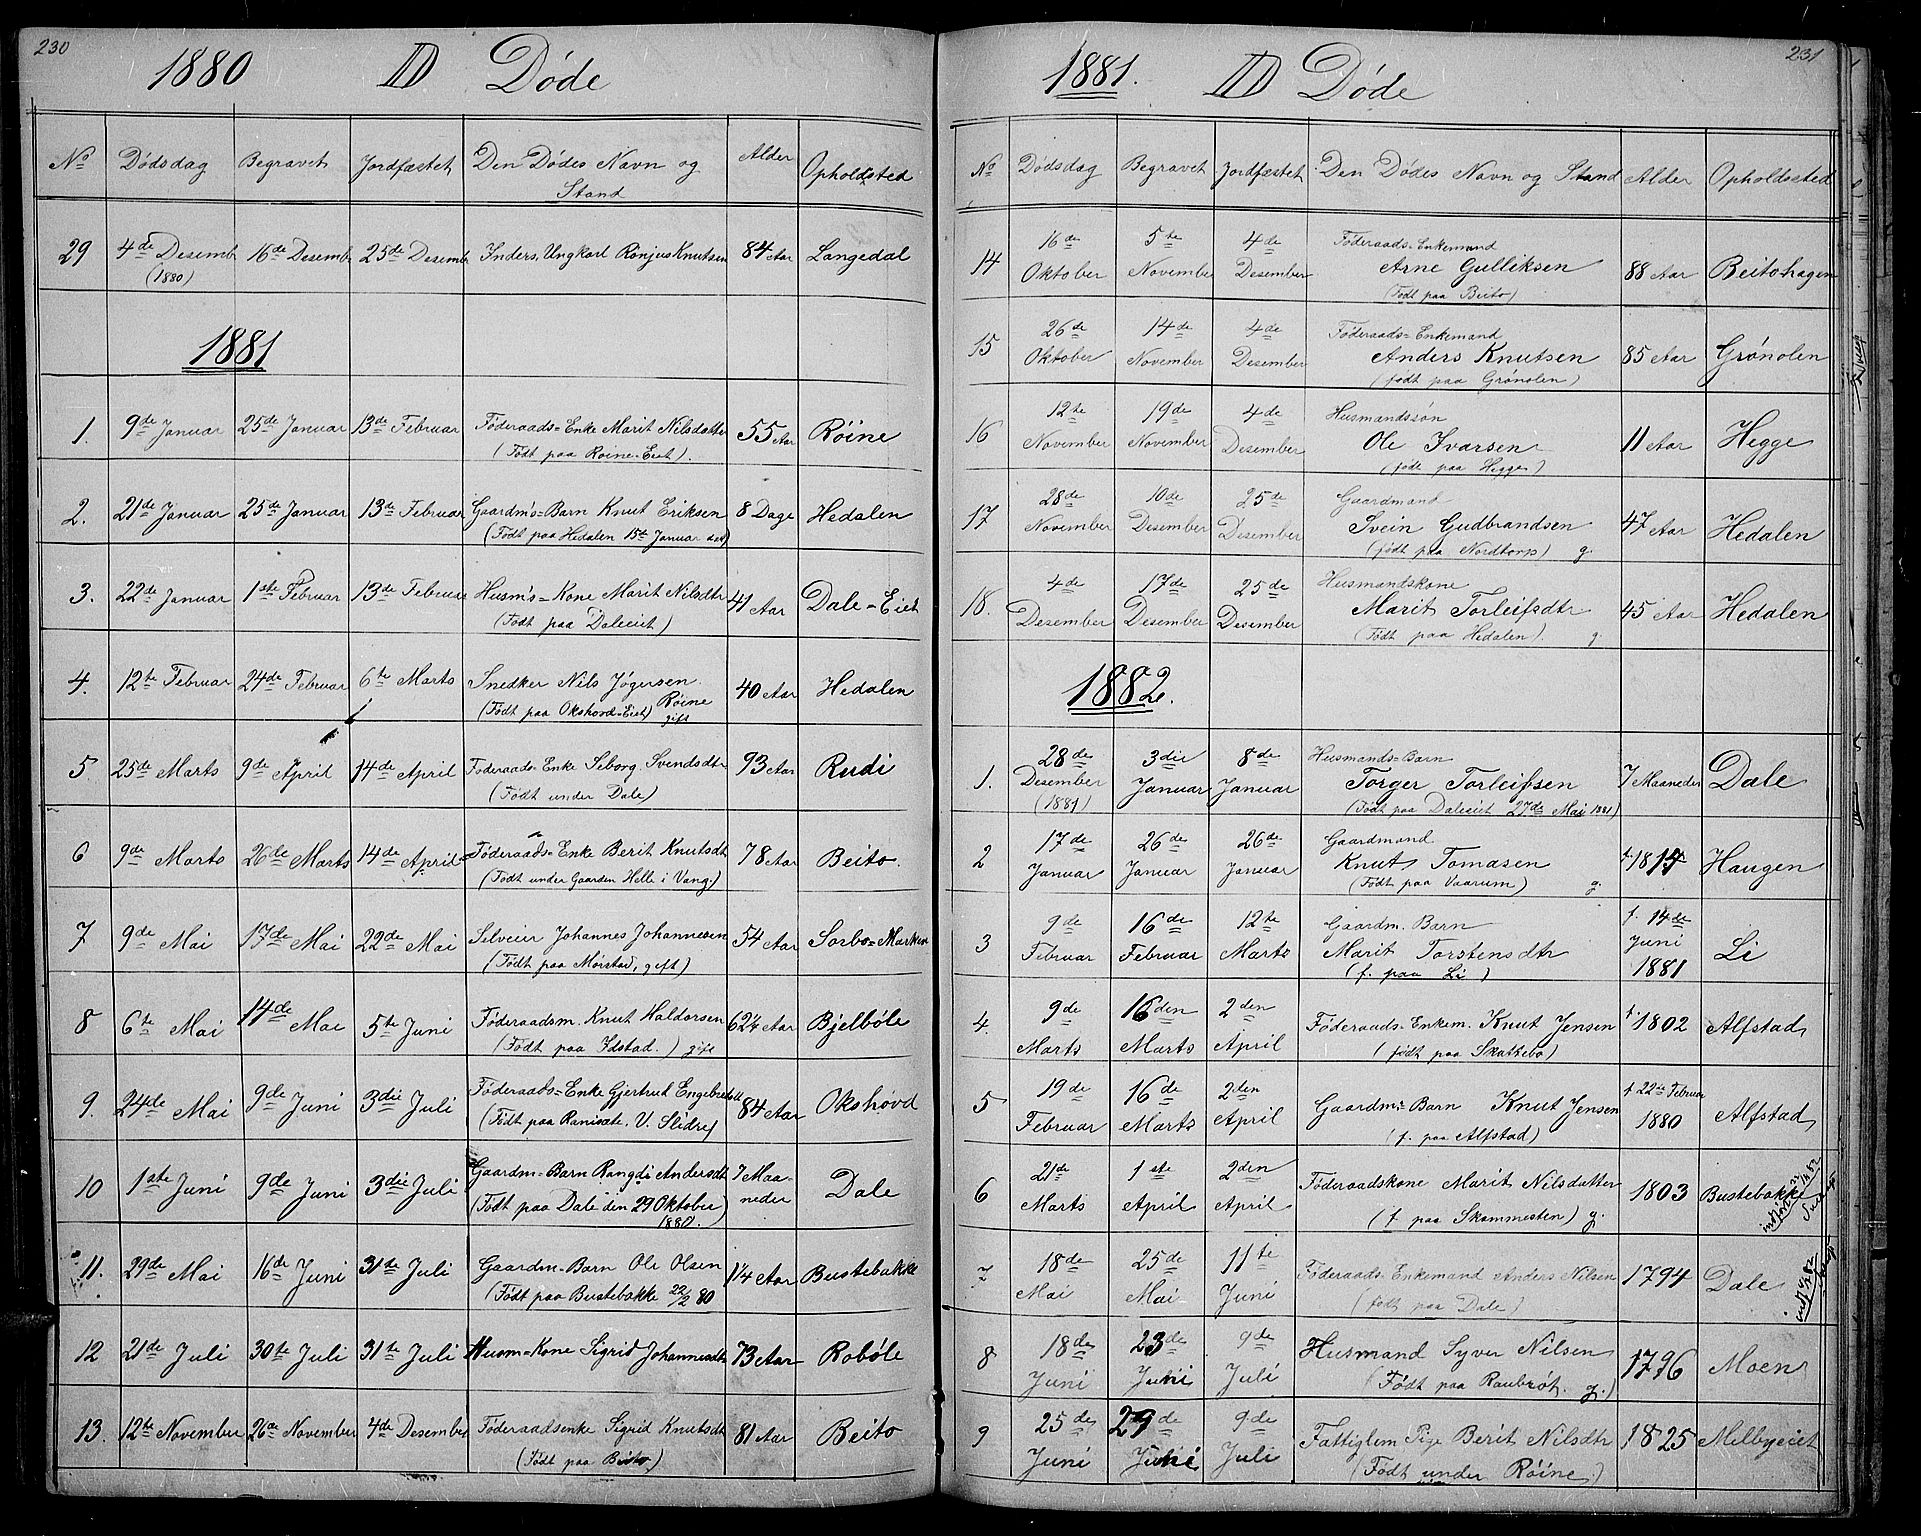 230
1880 D Døde
No Dødsdag Begravet Jordfæstet Den Dødes Navn og Stand Alder Opholdsted
29 4de Desemb (1880) 16de Desemb 25de Desemb Inders. Ungkarl Ronjus Knutsen 84 Aar Langedal
1881
1. 9de Januar 25de Januar 13de Februar Føderaads=Enke Marit Nilsdatter 55 Aar Røine
(Født paa Røine-Eiet).
2. 21de Januar 25de Januar 13de Februar Gaardm's=Barn Knut Eriksen 8 Dage Hedalen
(Født paa Hedalen 15de Januar)
3. 22de Januar 1ste Februar 13de Februar Husm's=Kone Marit Nilsdtr 41 Aar Dale=Eiet
(Født paa Daleeiet)
4. 12te Februar 24de Februar 6te Marts Snedker Nils Jøgersen 40 Aar Hedalen
(Født paa Okshovd=Eiet) Røine gift
5 25de Marts 9de April 14de April Føderaads=Enke Seborg Svendsdtr 93 Aar Rudi
(Født under Dale)
6 9de Marts 26te Marts 14de April Føderaads=Enke Berit Knutsdt 78 Aar Beito.
(Født under Gaarden Helle i Vang.)
7 9de Mai 17de Mai 22de Mai Selveier Johannes Johannesen 54 Aar Sorbo=Marken
(Født paa Mørstad, gift)
8 6te Mai 14de Mai 5te Juni Føderaadsm. Knut Haldorsen 62 1/4 Aar Bjelbøle
(Født paa Idstad.) gift
9. 24de Mai 9de Juni 3die Juli Føderaads=Enke Gjertrud Engebretsdt 84 Aar Okshovd
(Født paa V. Slidre)
10 1ste Juni 9de Juni 3die Juli Gaardm=Barn Rangdi Andersdt 7 Maaneder Dale
(Født paa Dale den 29 Oktober 1880.)
11. 29de Mai 16de Juni 31te Juli Gaardm=Barn Ole Olsen 1 1/4 Aar Bustebakke
(Født paa Bustebakke 22/2 80
12 21de Juli 30te Juli 31te Juli Husm=Kone Sigrid Johannesdt 73 Aar Robøle
13. 12te November 26de November 4de Desember Føderaadsenke Sigrid Knutsdt 81 Aar Beito
(Født paa Beito)
231
1881. D Døde
No Dødsdag Begravet Jordfæstet Den Dødes Navn og Stand Alder Opholdssted
14 16de Oktober 5te November 4de Desember Føderaads=Enkemand
Arne Gulliksen 88 Aar Beitohagen
(Født paa Beito)
15 26de Oktober 14de November 4de Desember Føderaads=Enkemand
Anders Knutsen 85 Aar Grønolen
(født paa Grønolen)
16 12te November 19de November 4de Desember Husmandssøn
Ole Ivarsen 11 Aar Hegge
(føde paa Hegge)
17 28de November 10de Desember 25de Desember Gaardmand
Svein Gudbrandsen 47 Aar Hedalen
(født paa Nordtorp) g.
18. 4de Desember 17de Desember 25de Desember Husmandskone
Marit Torleifsdtr 45 Aar Hedalen
(Født paa Hedalen). g.
1882.
1. 28de Desember (1881) 3die Januar 8de Januar Husmands=Barn
Torger Torleifsen 7 Maaneder Dale
(Født paa Daleeiet 27de Mai 1881)
2 17de Januar 26de Januar 26de Januar Gaardmand
Knut Tomasen f. 1814 Haugen
(Født paa Vaarum) g.
3 9de Februar 16de Februar 12te Marts Gaardm. Barn
Marit Torstensdtr f. 14de Juni 1881 Li
(f. paa Li)
4. 9de Marts 16den Marts 2den April Føderaads=Enkem. Knut Jensen f. 1802 Alfstad
(født paa Skattebo)
5 19de Februar 16de Marts 2den April Gaardm=Barn Knut Jensen f 22de Februar 1880 Alfstad
(f. paa Alfstad)
6 21de Marts 1ste April 2den April Føderaadskone Marit Nilsdatter 1803 Bustebakke
(f paa Skammesten) g.
7 18de Mai 25de Mai 11te Juni Føderaads=Enkemand Anders Nilsen 1794 Dale
(født paa Dale)
8 18de Juni 23de Juni 9de Juli Husmand Syver Nilsen 1796 Moen
(Født paa Raubrøt. g.)
9 25de Juni 29de Juni 9de Juli Fattiglem Pige Berit Nilsdtr 1825 Melbyeeiet
(Født under Røine.)